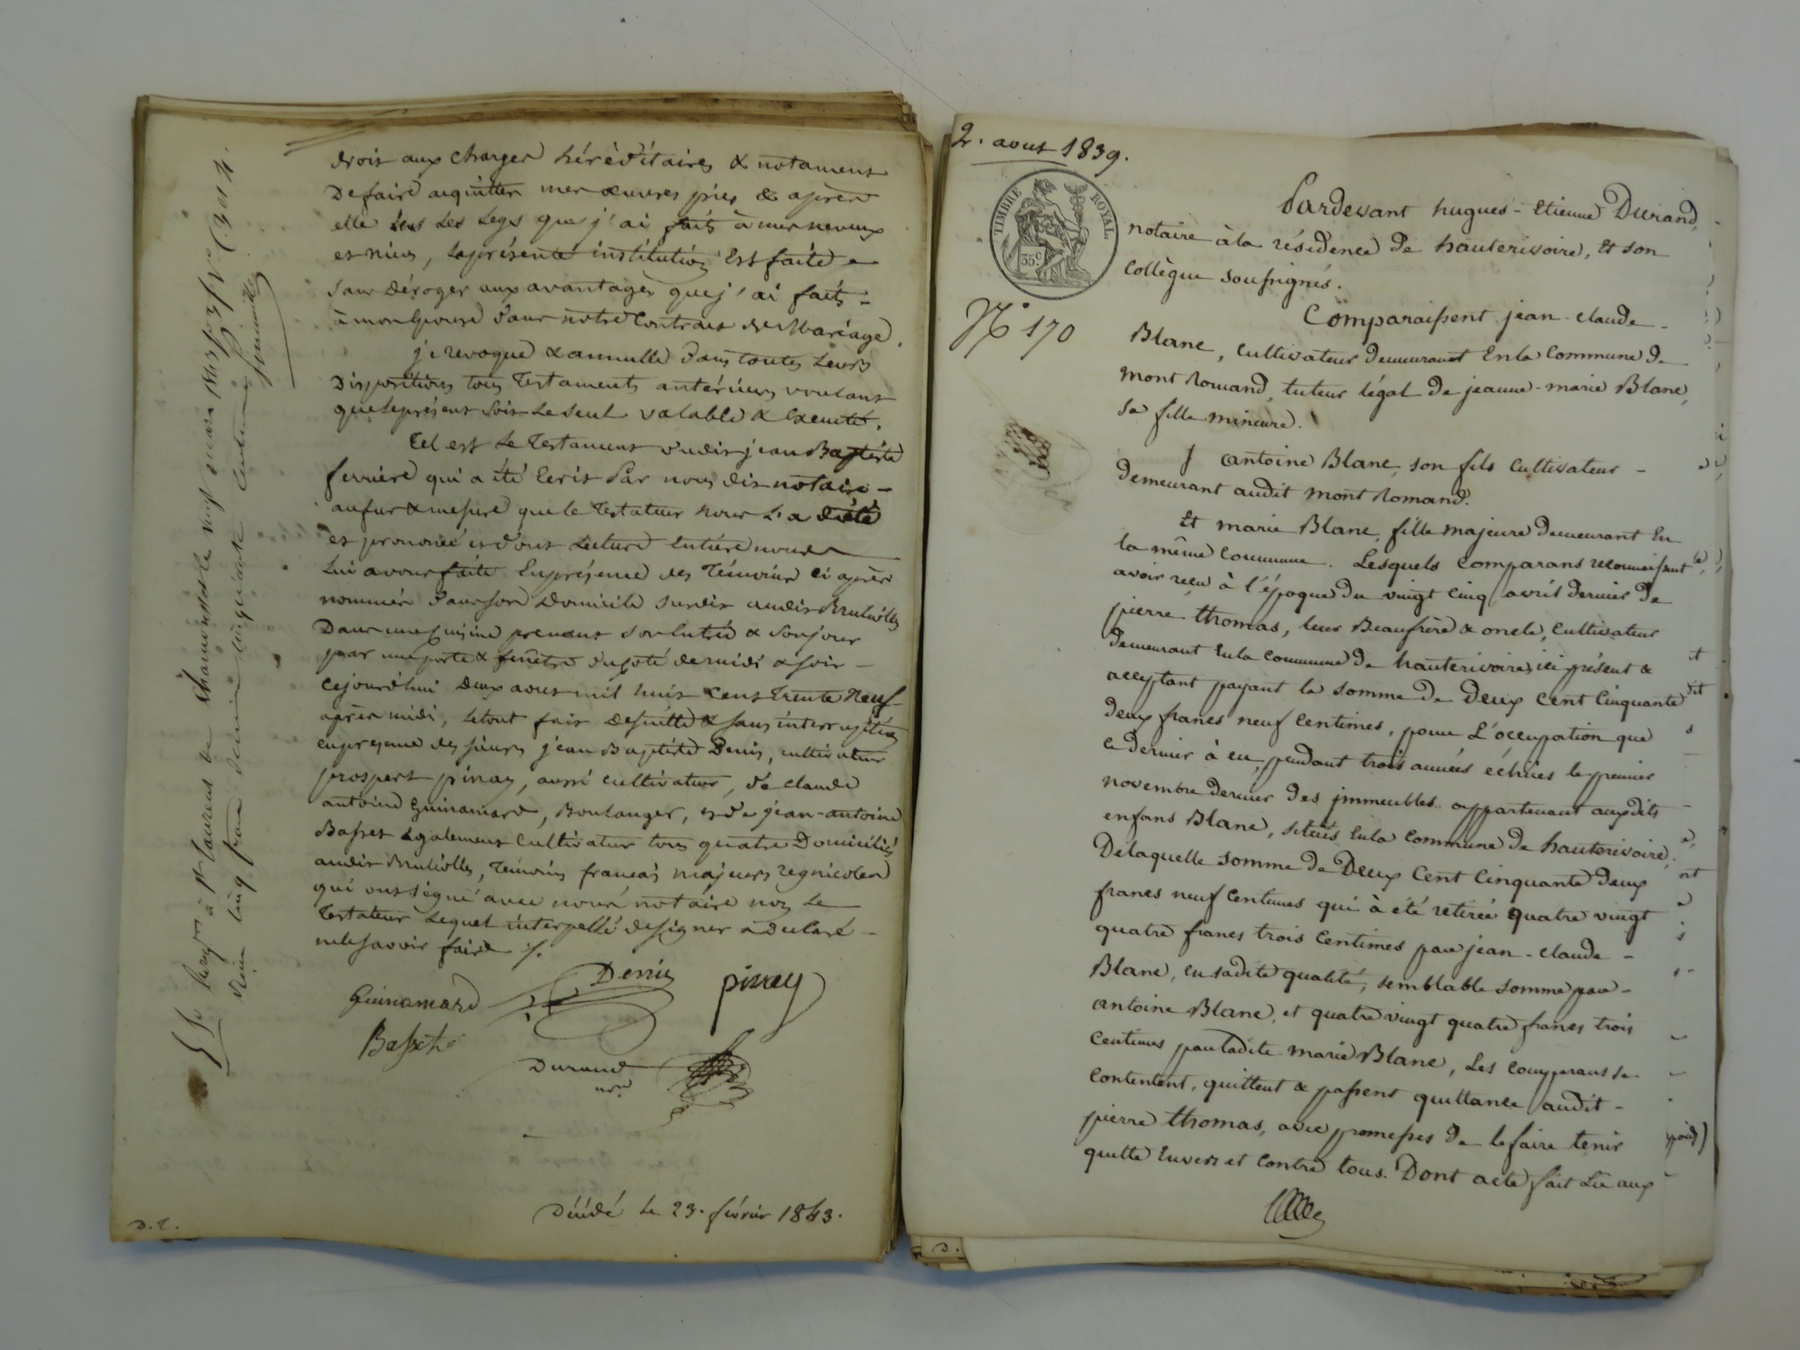 droit aux charges héréditaires & notament
de faire acquitter mes œuvres pies & après
elle les Legs que j'ai faits à mes neveux
et nieces, la présente institution Est faite
sans déroger aux avantages que j'ai faits
à mon Epouse dans notre Contrat de Mariage.
je revoque & annulle dans toutes Leurs
Dispositions tous Testaments antérieurs voulant
que le présent soit le seul valable & Executé.
Tel est le Testament dudit jean Baptiste
ferrière qui a été Ecrit Par nous dit notaire
au fur & mesure que le Testateur nous L'a dicté
et prononcé et dont Lecture Entière nous
Lui avons faite En présence des Témoins ci après
nommés dans son Domicile susdit audit Brulliolles
Dans une cuisine prenant son Entrée & son jour
par une porte & fenêtre du coté de midi & soir
cejourd'hui Deux aout mil huit cent Trente Neuf
après midi, le tout fait de suitte & sans interruption
en présence des sieurs jean Baptiste Denis, cultivateur
prospert pinay, aussi cultivateur, de claude
antoine Guinamard, Boulanger, et de jean-antoine
Basset Egalement Cultivateur tous quatre Domiciliés
audit Brulliolles, Témoins français majeurs regnicoles
qui ont signé avec nous notaire non Le
Testateur Lequel interpellé de signer a déclaré
ne le savoir faire ./.
Guinamard Denis pinay
Basset
Durand
nre
Décédé le 23. février 1843.
D. E.
Enregtré à St Laurent de Chamousset le vingt
Reçu cinq francs décime cinquante centimes
2. aout 1839.
TIMBRE ROYAL
35c
No 170
Pardevant hugues-Etienne Durand,
notaire à la résidence de hauterivoire, Et son
Collègue soussignés.
Comparaissent jean-claude
Blanc, cultivateur demeurant En la Commune de
mont Romand, tuteur légal de jeanne-marie Blanc,
sa fille mineure.
antoine Blanc, son fils cultivateur
demeurant audit mont Romand.
Et marie Blanc, fille majeure demeurant En
la même commune. Lesquels Comparans reconnaissent
avoir reçu à l'époque du vingt cinq avril dernier de
pierre thomas, leur Beaufrère & oncle, cultivateur
demeurant En la commune de hauterivoire, ici présent &
acceptant payant la somme de Deux Cent Cinquante
deux francs neuf centimes, pour L'occupation que
ce dernier à eu, pendant trois années échues le premier
novembre dernier des immeubles appartenant auxdits
enfans Blanc, situés En la commune de hauterivoire.
De laquelle somme de Deux Cent Cinquante Deux
francs neuf Centimes qui à été retirée quatre vingt
quatre francs trois Centimes par jean-claude
Blanc, en sadite qualité, semblable somme par
antoine Blanc, et quatre vingt quatre francs trois
Centimes par ladite marie Blanc, Les Comparans se
Contentent, quittent & passent quittance audit
pierre thomas, avec promesses de le faire tenir
quitte Envers et Contre tous. Dont acte fait Lu aux